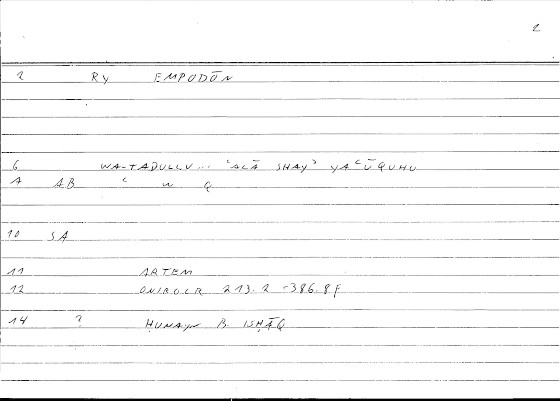 2
2 RY EMPODŌN
6 WA-TADULLU... ʿALĀ SHAYʾ YAʿŪQUHU
A AB ʿ W Q
10 SA
11 ARTEM
12 ONIROCR 213.2 -386.8F
14 ? ḤUNAYN B. ISḤĀQ